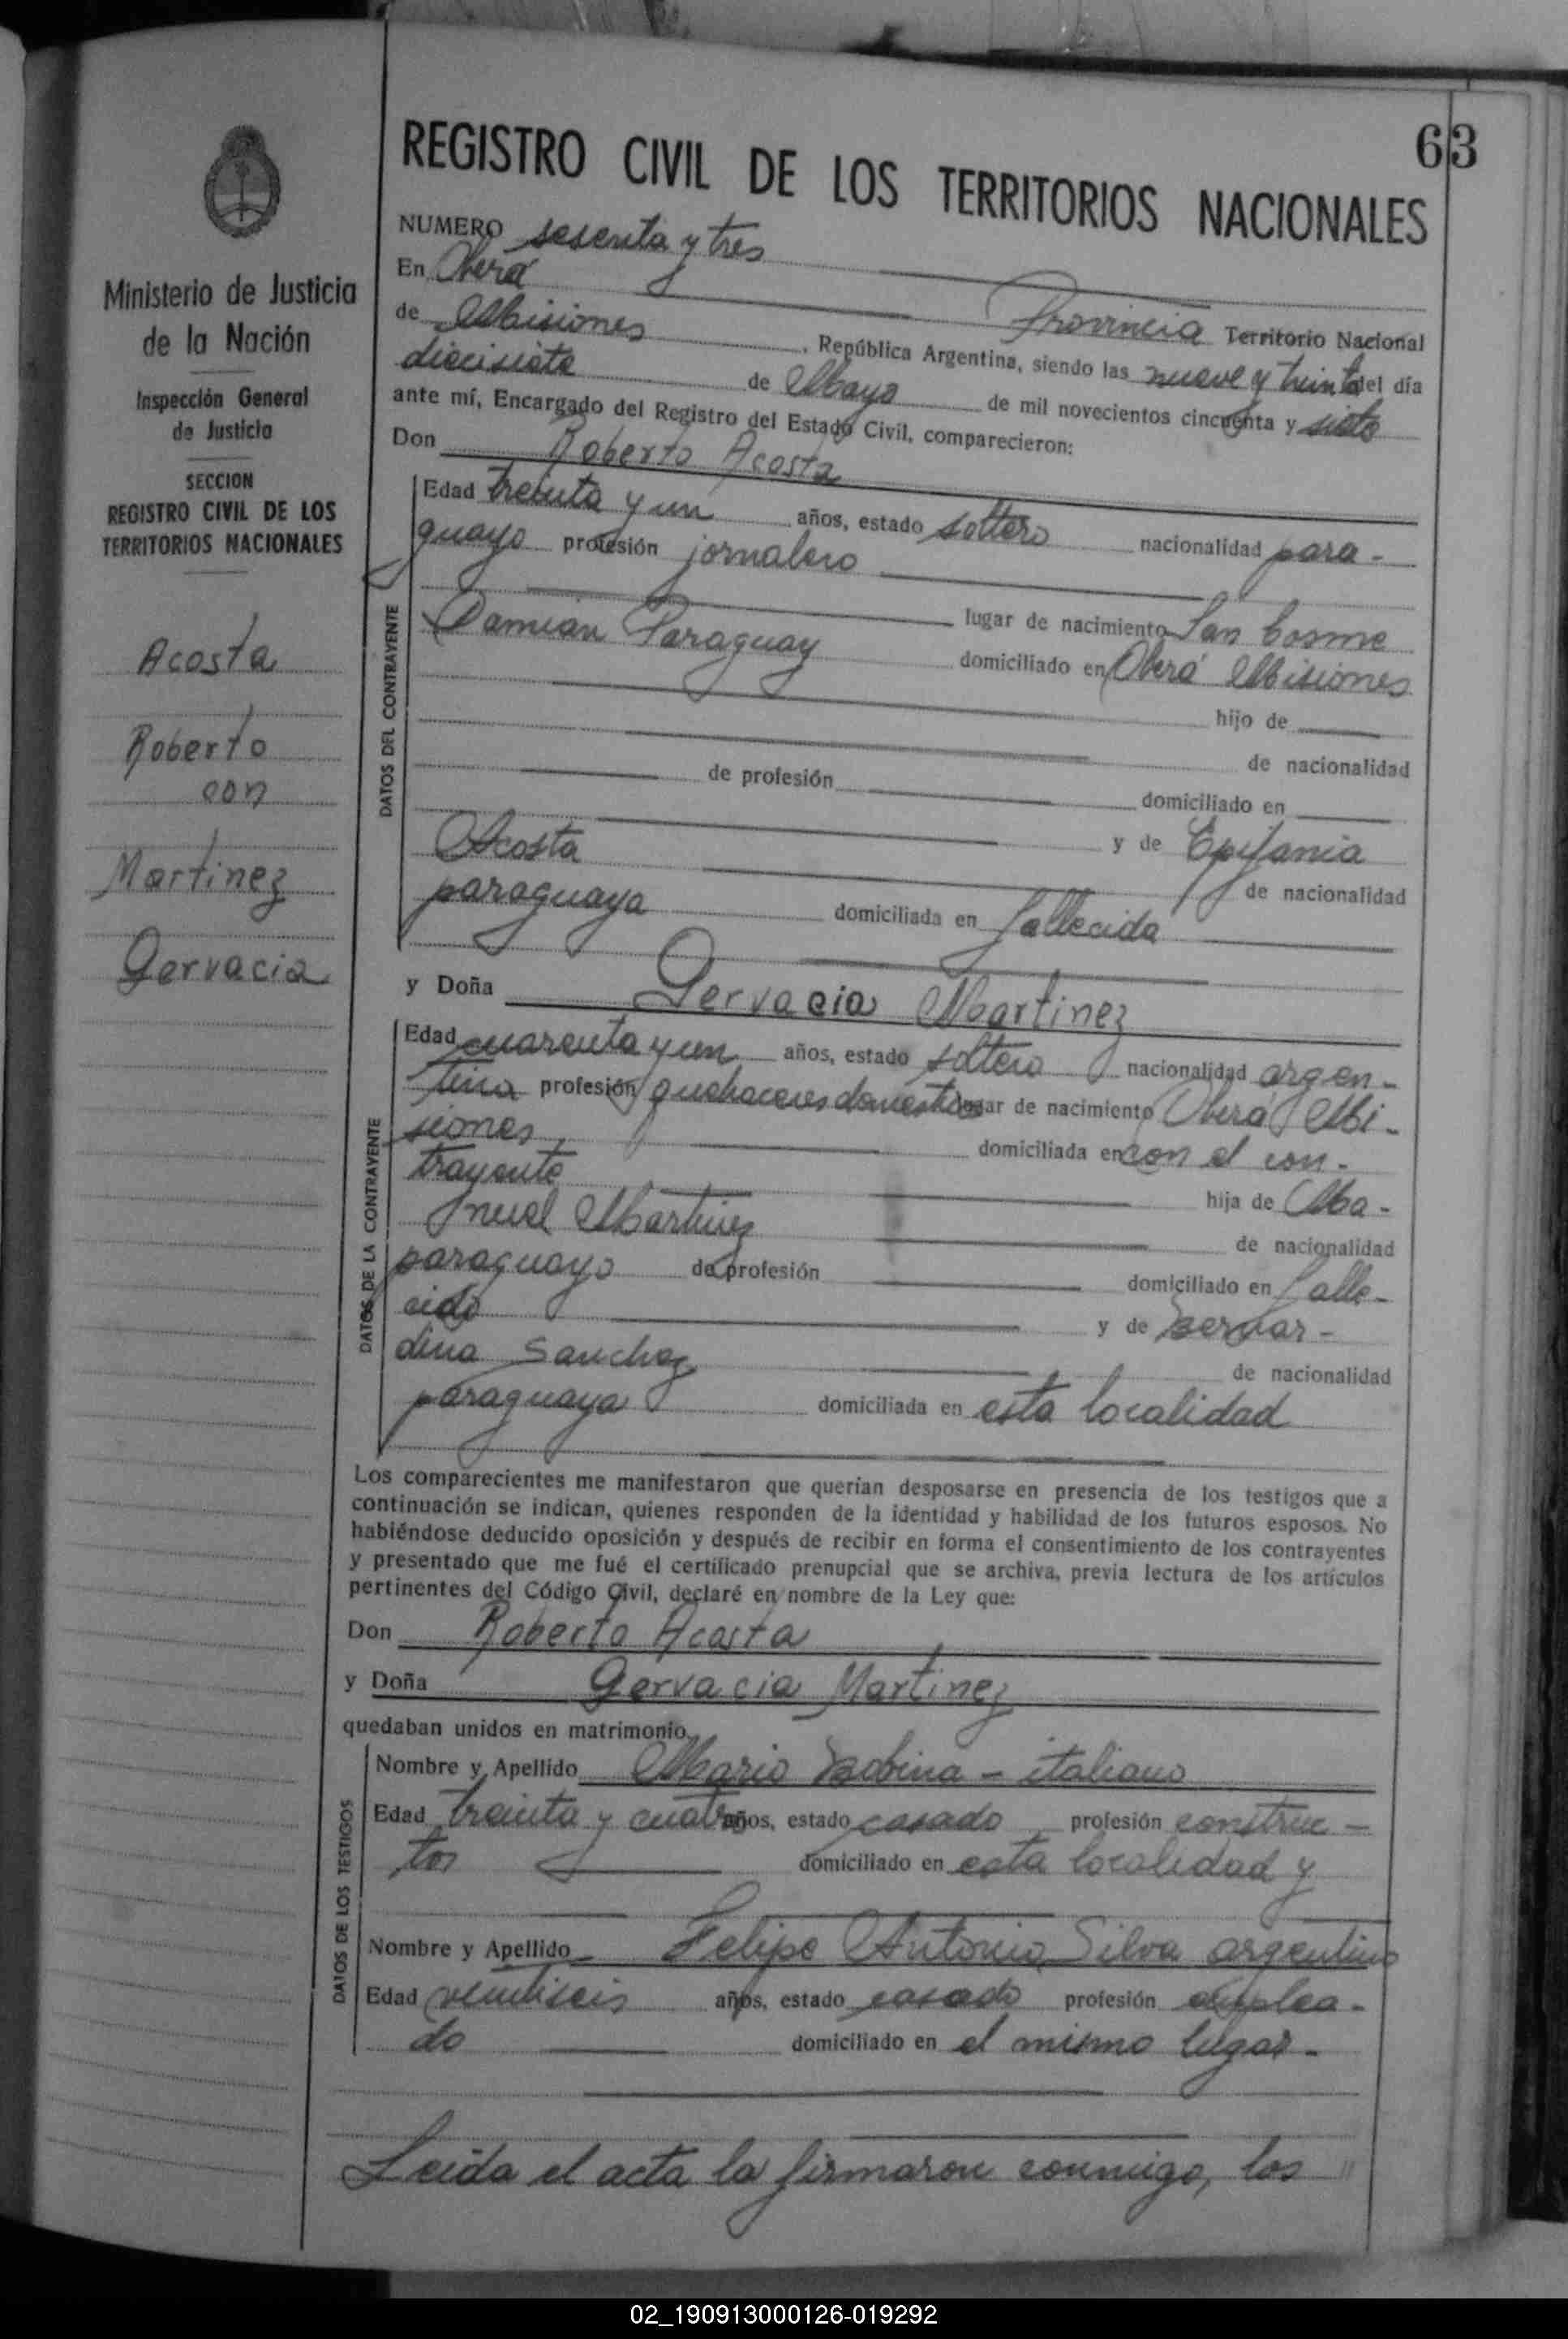 63
REGISTRO CIVIL DE LOS TERRITORIOS NACIONALES
Ministerio de Justicia
de la Nación
Inspección General
de Justicia
SECCION
REGISTRO CIVIL DE LOS
TERRITORIOS NACIONALES
Acosta
Roberto
con
Martinez
Gervacia
NUMERO sesenta y tres
En Oberá
Provincia Territorio Nacional
de Misiones, República Argentina, siendo las nueve y treinta del día
diecisiete de Mayo de mil novecientos cincuenta y siete
ante mí, Encargado del Registro del Estado Civil, comparecieron:
Don Roberto Acosta
DATOS DEL CONTRAYENTE
Edad treinta y un años, estado soltero nacionalidad para-
guayo profesión jornalero
lugar de nacimiento San Cosme
Damian Paraguay domiciliado en Oberá Misiones
hijo de
de nacionalidad
de profesión domiciliado en
y de Epifania
Acosta de nacionalidad
paraguaya domiciliada en fallecida
y Doña Gervacia Martinez
DATOS DE LA CONTRAYENTE
Edad cuarenta y un años, estado soltera nacionalidad argen-
tina profesión quehaceres domesticos lugar de nacimiento Oberá Mi-
siones domiciliada en con el con-
trayente hija de Ma-
nuel Martinez de nacionalidad
paraguayo de profesión domiciliado en falle-
cido y de Bernar-
dina Sanchez de nacionalidad
paraguaya domiciliada en esta localidad
Los comparecientes me manifestaron que querían desposarse en presencia de los testigos que a
continuación se indican, quienes responden de la identidad y habilidad de los futuros esposos. No
habiéndose deducido oposición y después de recibir en forma el consentimiento de los contrayentes
y presentado que me fué el certificado prenupcial que se archiva, previa lectura de los artículos
pertinentes del Código Civil, declaré en nombre de la Ley que:
Don Roberto Acosta
y Doña Gervacia Martinez
quedaban unidos en matrimonio.
DATOS DE LOS TESTIGOS
Nombre y Apellido Mario - italiano
Edad treinta y cuatro años, estado casado profesión construc-
tor domiciliado en esta localidad y
Nombre y Apellido Felipe Antonio Silva argentino
Edad veintiseis años, estado casado profesión emplea-
do domiciliado en el mismo lugar-
Leida el acta la firmaron conmigo, los "
02_190913000126-019292